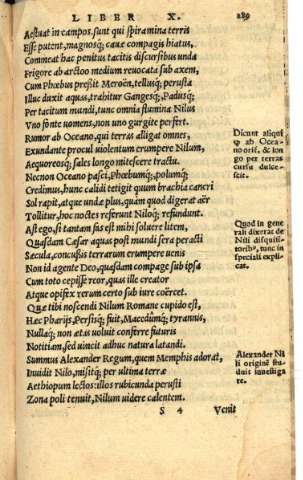 LIBER X. 289
Aestuat in campos. sunt qui spiramina terris
Esse putent, magnosq; cauae compagis hiatus,
Commeat hac penitus tacitis discursibus unda
Frigore ab arctoo medium reuocata sub axem,
Cum Phoebus pressit Meroen, tellusq; perusta
Illuc duxit aquas, trahitur Gangesq; Padusq;
Per tacitum mundi, tunc omnia flumina Nilus
Vno fonte uomens, non uno gurgite perfert.
Rumor ab Oceano, qui terras alligat omnes,
Exundante procul uiolentum erumpere Nilum,
Aequoreosq; sales longo mitescere tractu.
Necnon Oceano pasci, Phoebumq; polumq;
Credimus, hunc calidi tetigit quum brachia cancri
Sol rapit, atque unda plus, quàm quod digerat aër
Tollitur, hoc noctes referunt Niloq; refundunt.
Ast ego, si tantam fas est mihi soluere litem,
Quasdam Caesar aquas post mundi sera peracti
Secula, concussis terrarum erumpere uenis
Non id agente Deo, quasdam compage sub ipsa
Cum toto coepisse reor, quas ille creator
Atque opifex rerum certo sub iure coërcet.
Quae tibi noscendi Nilum Romane cupido est,
Haec Pharijs, Persisq; fuit, Macedumq; tyrannis,
Nullaq; non aetas uoluit conferre futuris
Notitiam, sed uincit adhuc natura latandi.
Summus Alexander Regum, quem Memphis adorat,
Inuidit Nilo, misitq; per ultima terrae
Aethiopum lectos: illos rubicunda perusti
Zona poli tenuit, Nilum uidere calentem.
S 4 Venit
Dicunt aliqui
ab Ocea-
no oriri, & lon
go per terras
cursu dulce-
scit.
Quod in ge-
nerali dixerat de
Nili disquisi-
torib', nunc in
speciali expli-
cat.
Alexander Ni
li origine stu
duit inuestiga
re.